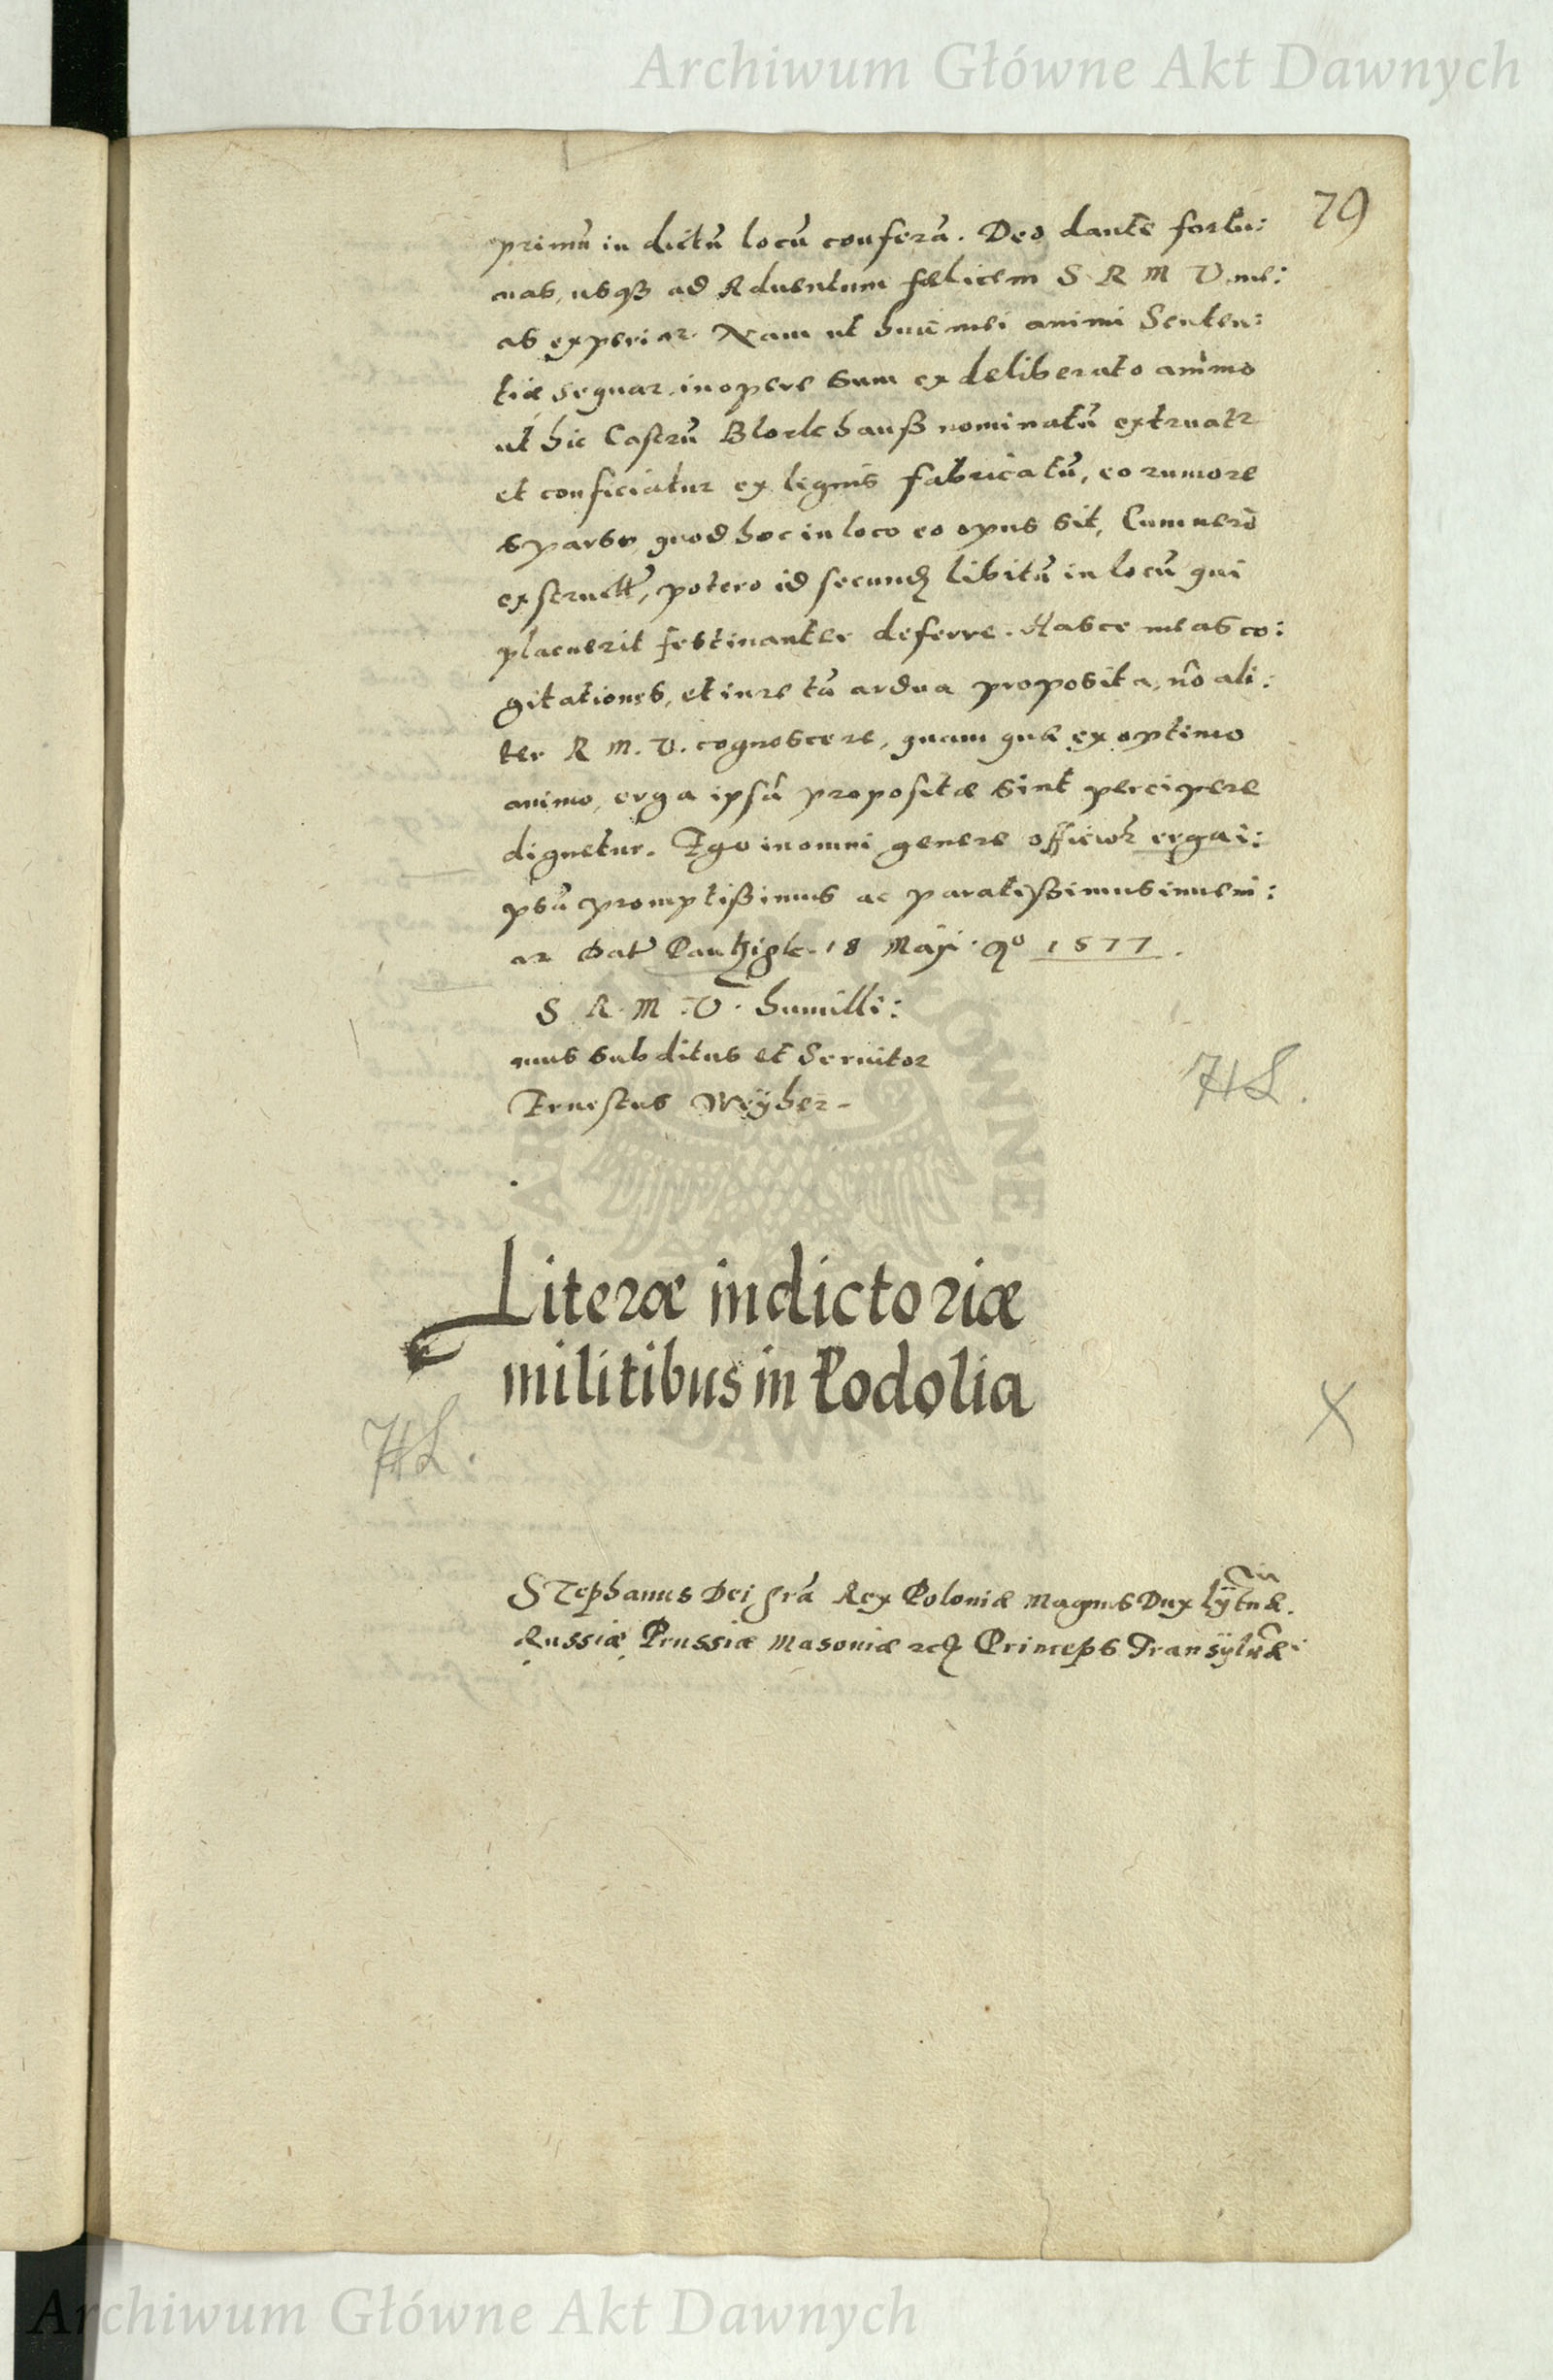 Archiwum Główne Akt Dawnych
79
primū in dictū locū conferā. Deo dante fortu:
nas, usq₃ ad Aduentum fœlicem S R M V me:
as experiar. Nam ut huic mei animi Senten:
tiæ sequar, in opere sum ex deliberato animo
ut hic Castrū Blockhauß nominatū extruatr
et conficiatur ex lignis fabricatū, eo rumore
sparso, quod hoc in loco eo opus sit, Cum uerò
exstructū, potero id secundū libitū in locū qui
placuerit festinanter deferre. Hasce meas co:
gitationes, et iure tā ardua proposita, nō ali:
ter R M. V. cognoscere, quam quæ ex optimo
animo, erga ipsā propositæ sint percipere
dignetur. Ego in omni genere officiorū erga i:
psā promptißimus ac paratißimus inueni:
ar Dat Pautzigk. 18 Maji Aº 1577.
S R. M. V. humilli:
mus subditus et Seruitor
Ernestus Weÿher
HL.
Literæ indictoriæ
militibus in Podolia
HL.
X
Stephanus Dei grā Rex Poloniæ Magnus Dux Lÿtuæ.
Russiæ Prussiæ Masouiæ etc Princeps Transÿluæ
Archiwum Główne Akt Dawnych